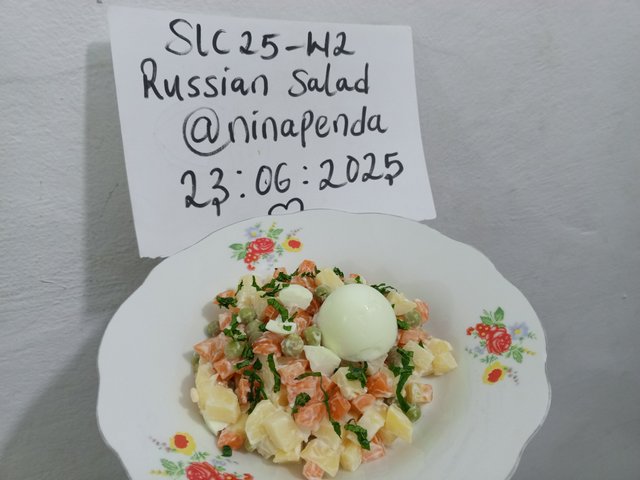 SLC25-W2
Russian Salad
@ninapenda
23:06:2025